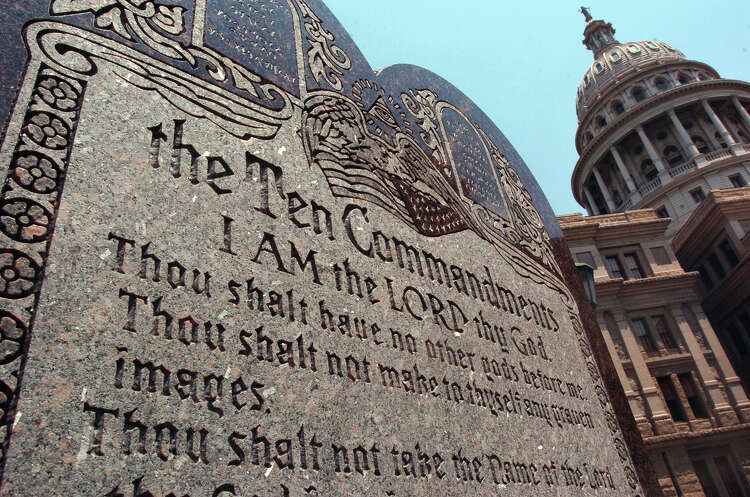 the Ten Commandments
I AM the LORD thy God.
Thou shalt have no other gods before me.
Thou shalt not make to thyself any graven
images.
Thou shalt not take the Name of the Lord
thy God in